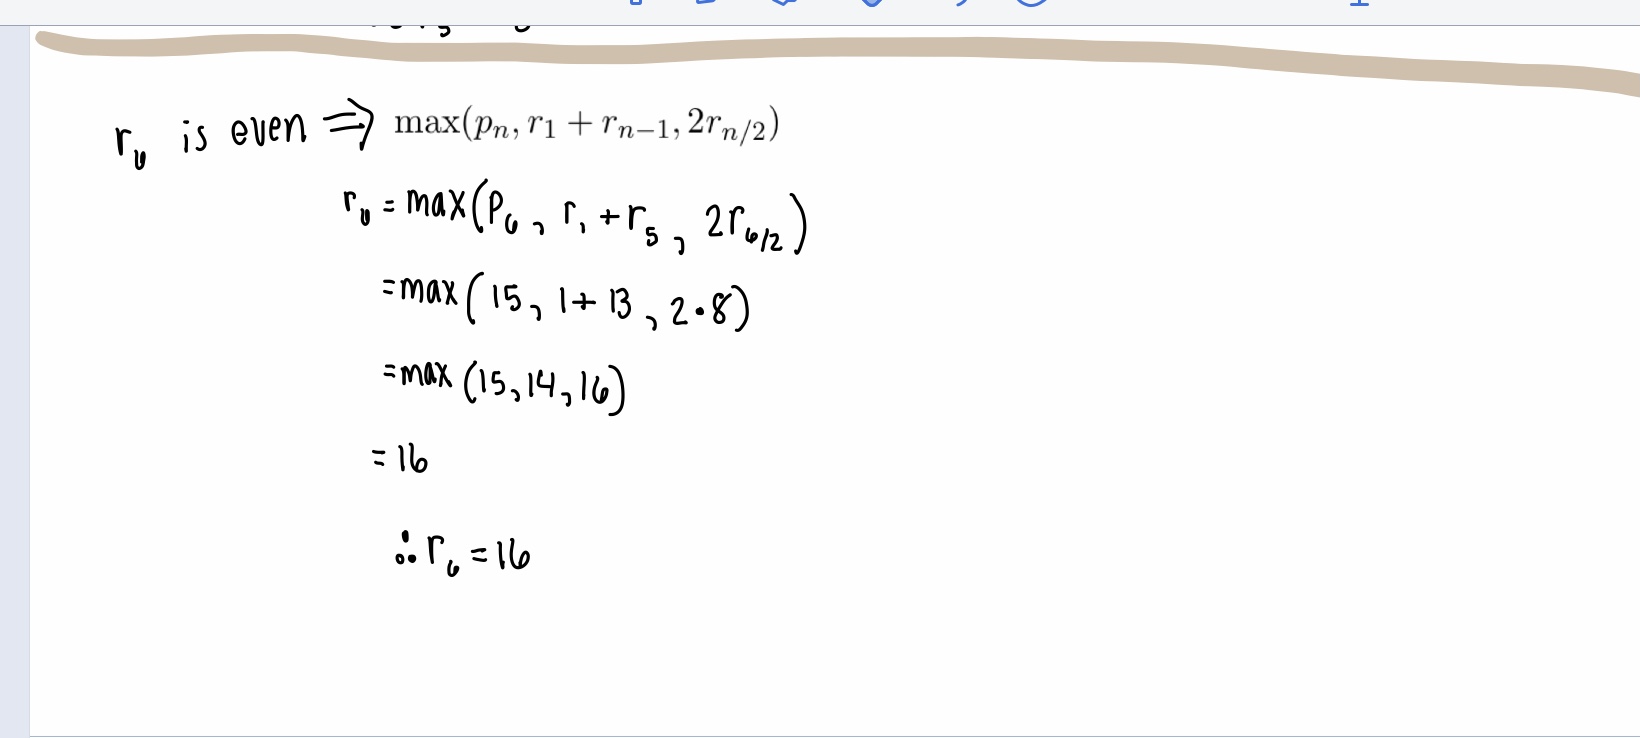 r₆ is even ⇒ max(pₙ, r₁ + rₙ₋₁, 2rₙ/₂)
r₆ = max(P₆, r₁ + r₅, 2r₆/₂)
= max(15, 1 + 13, 2·8)
= max(15, 14, 16)
= 16
∴ r₆ = 16